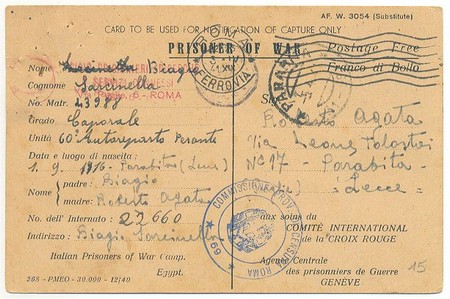 AF. W. 3054 (Substitute)
CARD TO BE USED FOR NOTIFICATION OF CAPTURE ONLY
PRISONER OF WAR
Postage Free
Franco di Bollo
Nome Biagio
Cognome Sarcinella
ROMA
FERROVIA
No. Matr. 23988
Grado Caporale
Unità 60° Autoreparto Pesante
Data e luogo di nascita:
1. 9. 1916 - Parabita (Lecce)
Nome
padre: Biagio
madre: Roberto Agata
No. dell' Internato: 27660
Indirizzo: Biagio Sarcinella
Italian Prisoners of War Camp.
Egypt.
268 - PMEO - 30.000 - 12/40
Roberto Agata
Via Leone
N° 17 - Parabita
Lecce
ROMA
69
aux soins du
COMITÉ INTERNATIONAL
de la CROIX ROUGE
Agence Centrale
des prisonniers de Guerre
GENÈVE
15